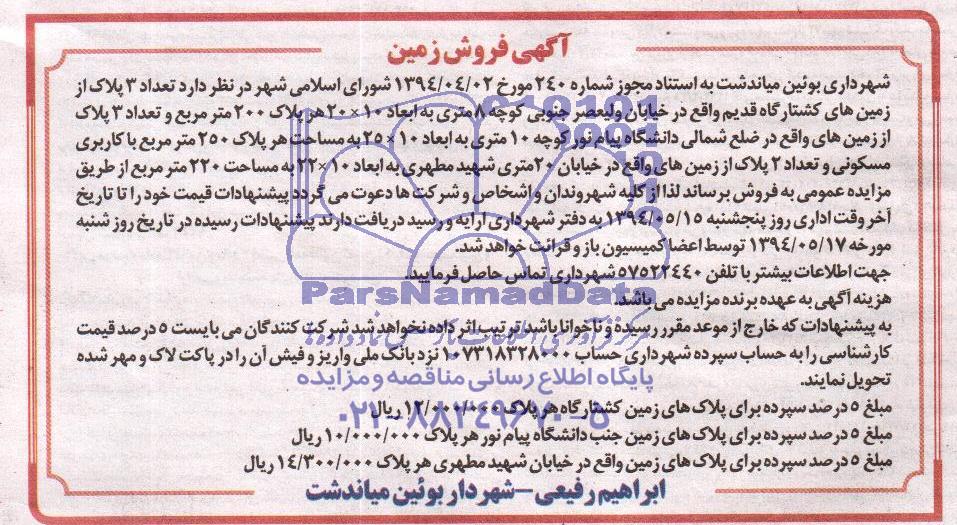 آگهی فروش زمین
شهرداری بوئین میاندشت به استناد مجوز شماره ۲۴۰ مورخ ۱۳۹۴/۰۴/۰۲ شورای اسلامی شهر در نظر دارد تعداد ۳ پلاک از
زمین های کشتارگاه قدیم واقع در خیابان ولیعصر جنوبی کوچه ۸ متری به ابعاد ۱۰×۲۰ هر پلاک ۲۰۰ متر مربع و تعداد ۳ پلاک
از زمین های واقع در ضلع شمالی دانشگاه پیام نور کوچه ۱۰ متری به ابعاد ۱۰×۲۵ به مساحت هر پلاک ۲۵۰ متر مربع با کاربری
مسکونی و تعداد ۲ پلاک از زمین های واقع در خیابان ۲۰ متری شهید مطهری به ابعاد ۱۰×۲۲ به مساحت ۲۲۰ متر مربع از طریق
مزایده عمومی به فروش برساند لذا از کلیه شهروندان و اشخاص و شرکت ها دعوت می گردد پیشنهادات قیمت خود را تا تاریخ
آخر وقت اداری روز پنجشنبه ۱۳۹۴/۰۵/۱۵ به دفتر شهرداری ارایه و رسید دریافت دارند پیشنهادات رسیده در تاریخ روز شنبه
مورخه ۱۳۹۴/۰۵/۱۷ توسط اعضا کمیسیون باز و قرائت خواهد شد.
جهت اطلاعات بیشتر با تلفن ۵۷۵۲۲۴۴۰ شهرداری تماس حاصل فرمایید.
ParsNamadData
هزینه آگهی به عهده برنده مزایده می باشد.
به پیشنهادات که خارج از موعد مقرر رسیده و ناخوانا باشد ترتیب اثر داده نخواهد شد شرکت کنندگان می بایست ۵ درصد قیمت
کارشناسی را به حساب سپرده شهرداری حساب ۱۰۷۳۱۸۳۲۸۰۰۰ نزد بانک ملی واریز و فیش آن را در پاکت لاک و مهر شده
پایگاه اطلاع رسانی مناقصه و مزایده
تحویل نمایند.
مبلغ ۵ درصد سپرده برای پلاک های زمین کشتارگاه هر پلاک ۱۲/۰۰۰/۰۰۰ ریال
۰۲۱-۸۸۳۴۹۶۷۰-۵
مبلغ ۵ درصد سپرده برای پلاک های زمین جنب دانشگاه پیام نور هر پلاک ۱۰/۰۰۰/۰۰۰ ریال
مبلغ ۵ درصد سپرده برای پلاک های زمین واقع در خیابان شهید مطهری هر پلاک ۱۴/۳۰۰/۰۰۰ ریال
ابراهیم رفیعی-شهردار بوئین میاندشت